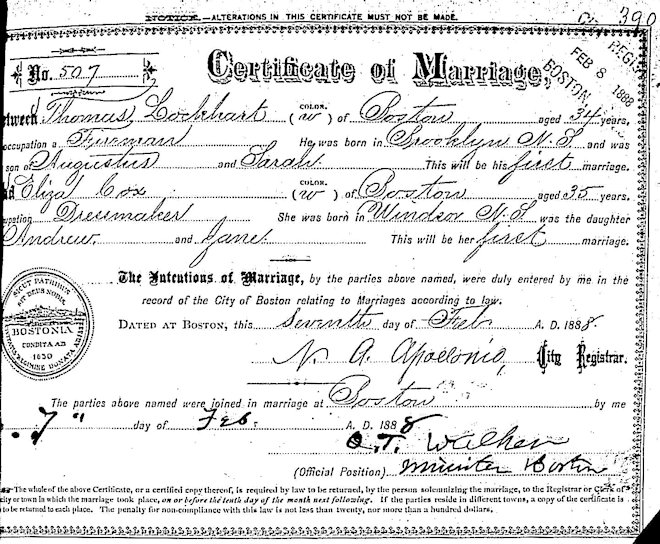 NOTICE.—ALTERATIONS IN THIS CERTIFICATE MUST NOT BE MADE.
390
REG
FEB 8 1888
BOSTON
No. 507
Certificate of Marriage,
etween Thomas Lockhart (COLOR. w) of Boston aged 34 years,
occupation a Fireman He was born in Brooklyn N.S. and was
son of Augustus and Sarah. This will be his first marriage.
Eliza Cox (COLOR. w) of Boston aged 35 years.
upation Dressmaker She was born in Windsor N.S. was the daughter
Andrew and Jane. This will be her first marriage.
The Intentions of Marriage, by the parties above named, were duly entered by me in the
record of the City of Boston relating to Marriages according to law.
DATED AT BOSTON, this Seventh day of Feb A. D. 1888.
N. A. Apollonio, City Registrar.
SICUT PATRIBUS
SIT DEUS NOBIS
BOSTONIA
CONDITA AD
1630
CIVITATIS REGIMINE DONATA AD
The parties above named were joined in marriage at Boston by me
7" day of Feb. A. D. 1888
O. T. Walker
(Official Position.) Minister Boston
The whole of the above Certificate, or a certified copy thereof, is required by law to be returned, by the person solemnizing the marriage, to the Registrar or Clerk of
city or town in which the marriage took place, on or before the tenth day of the month next following. If the parties reside in different towns, a copy of the certificate is
to be returned to each place. The penalty for non-compliance with this law is not less than twenty, nor more than a hundred dollars.